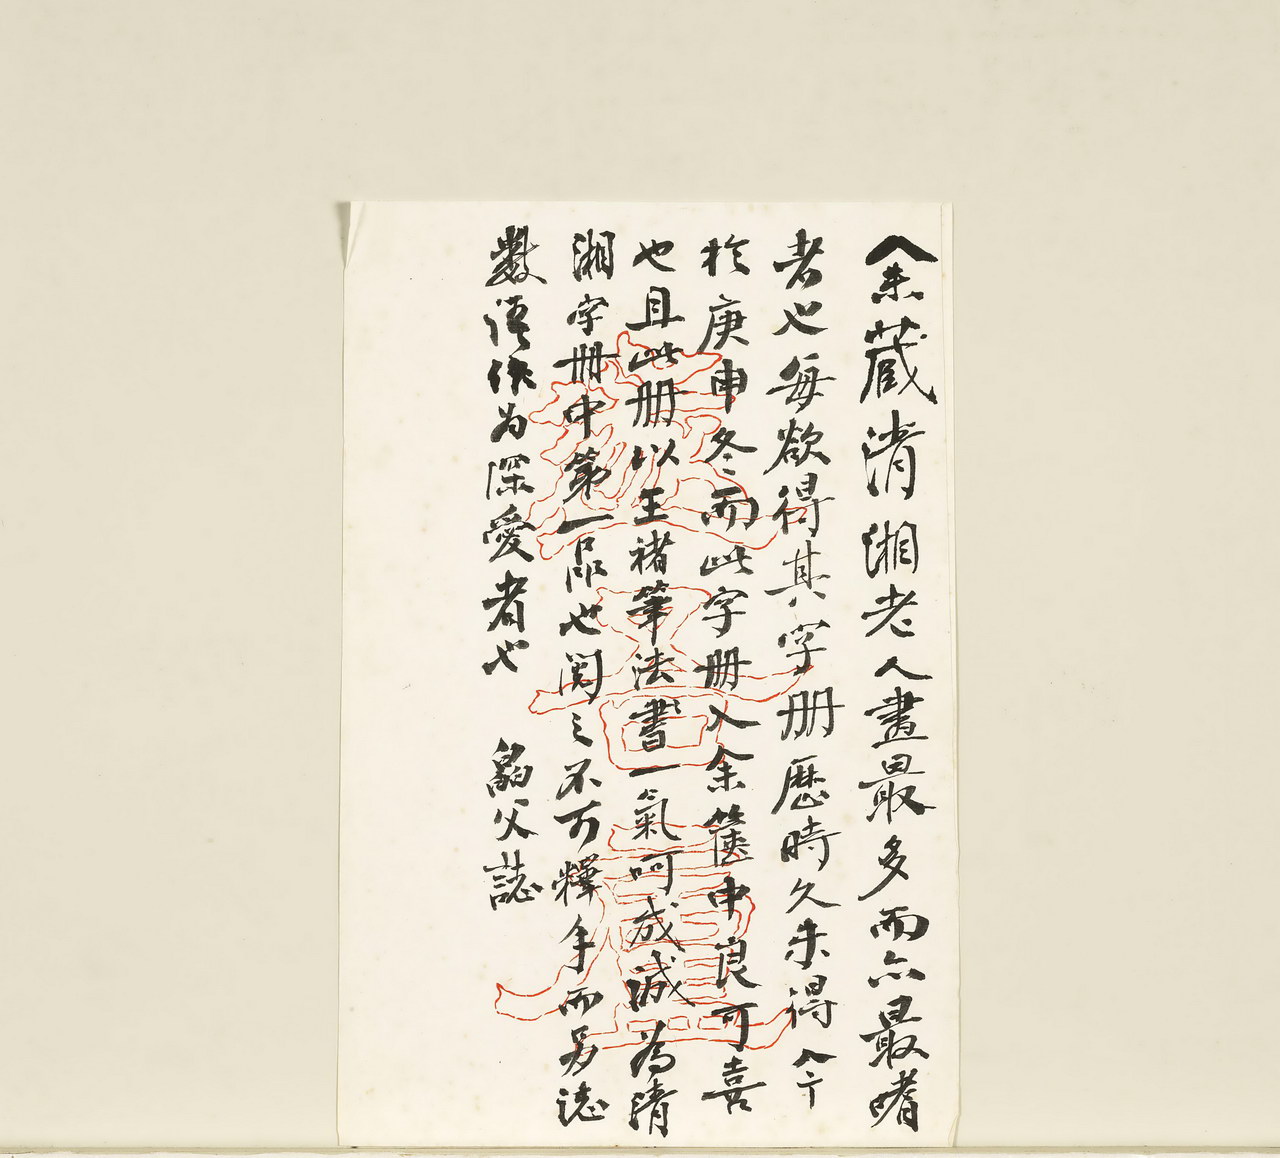 余藏清湘老人畫最多而亦最嗜
者也每欲得其字册歷時久未得今
於庚申冬而此字册入余篋中良可喜
也且此册以王褚筆法書一氣呵成誠為清
湘字冊中第一品也閱之不可釋手而另誌
數語作为深愛者也 父誌